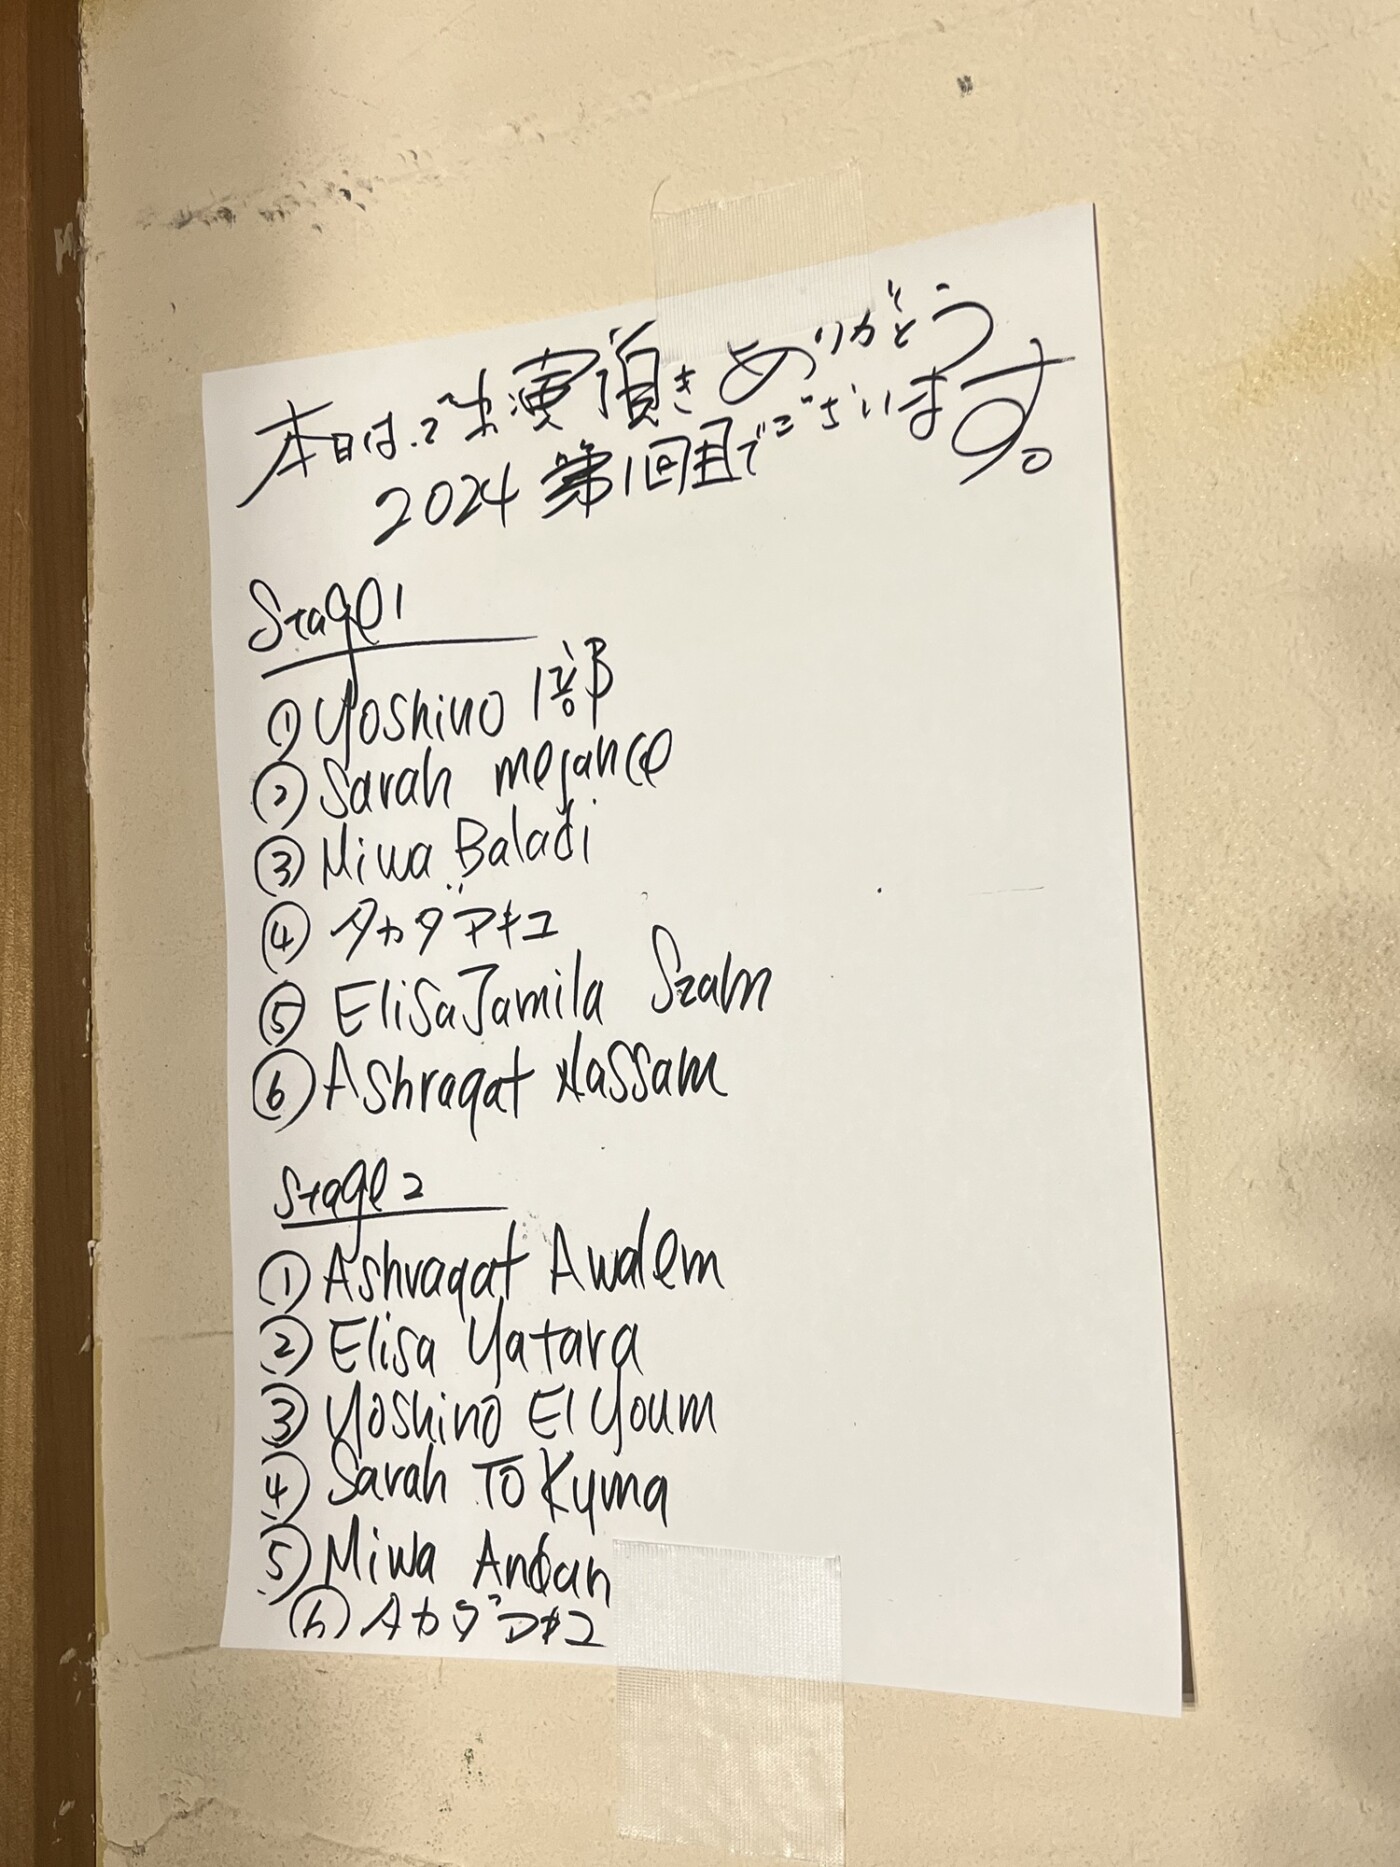 本日は、ご出演頂きありがとう
2024 第1回目でございます。
Stage 1
① Yoshino 1部
② Sarah mejance
③ Miwa Baladi
④ タカダアキコ
⑤ Elisa Jamila Szam
⑥ Ashraqat Hassam
Stage 2
① Ashraqat Awalem
② Elisa Yatara
③ Yoshino El Youm
④ Sarah TO Kyma
⑤ Miwa Andan
⑥ タカダアキコ